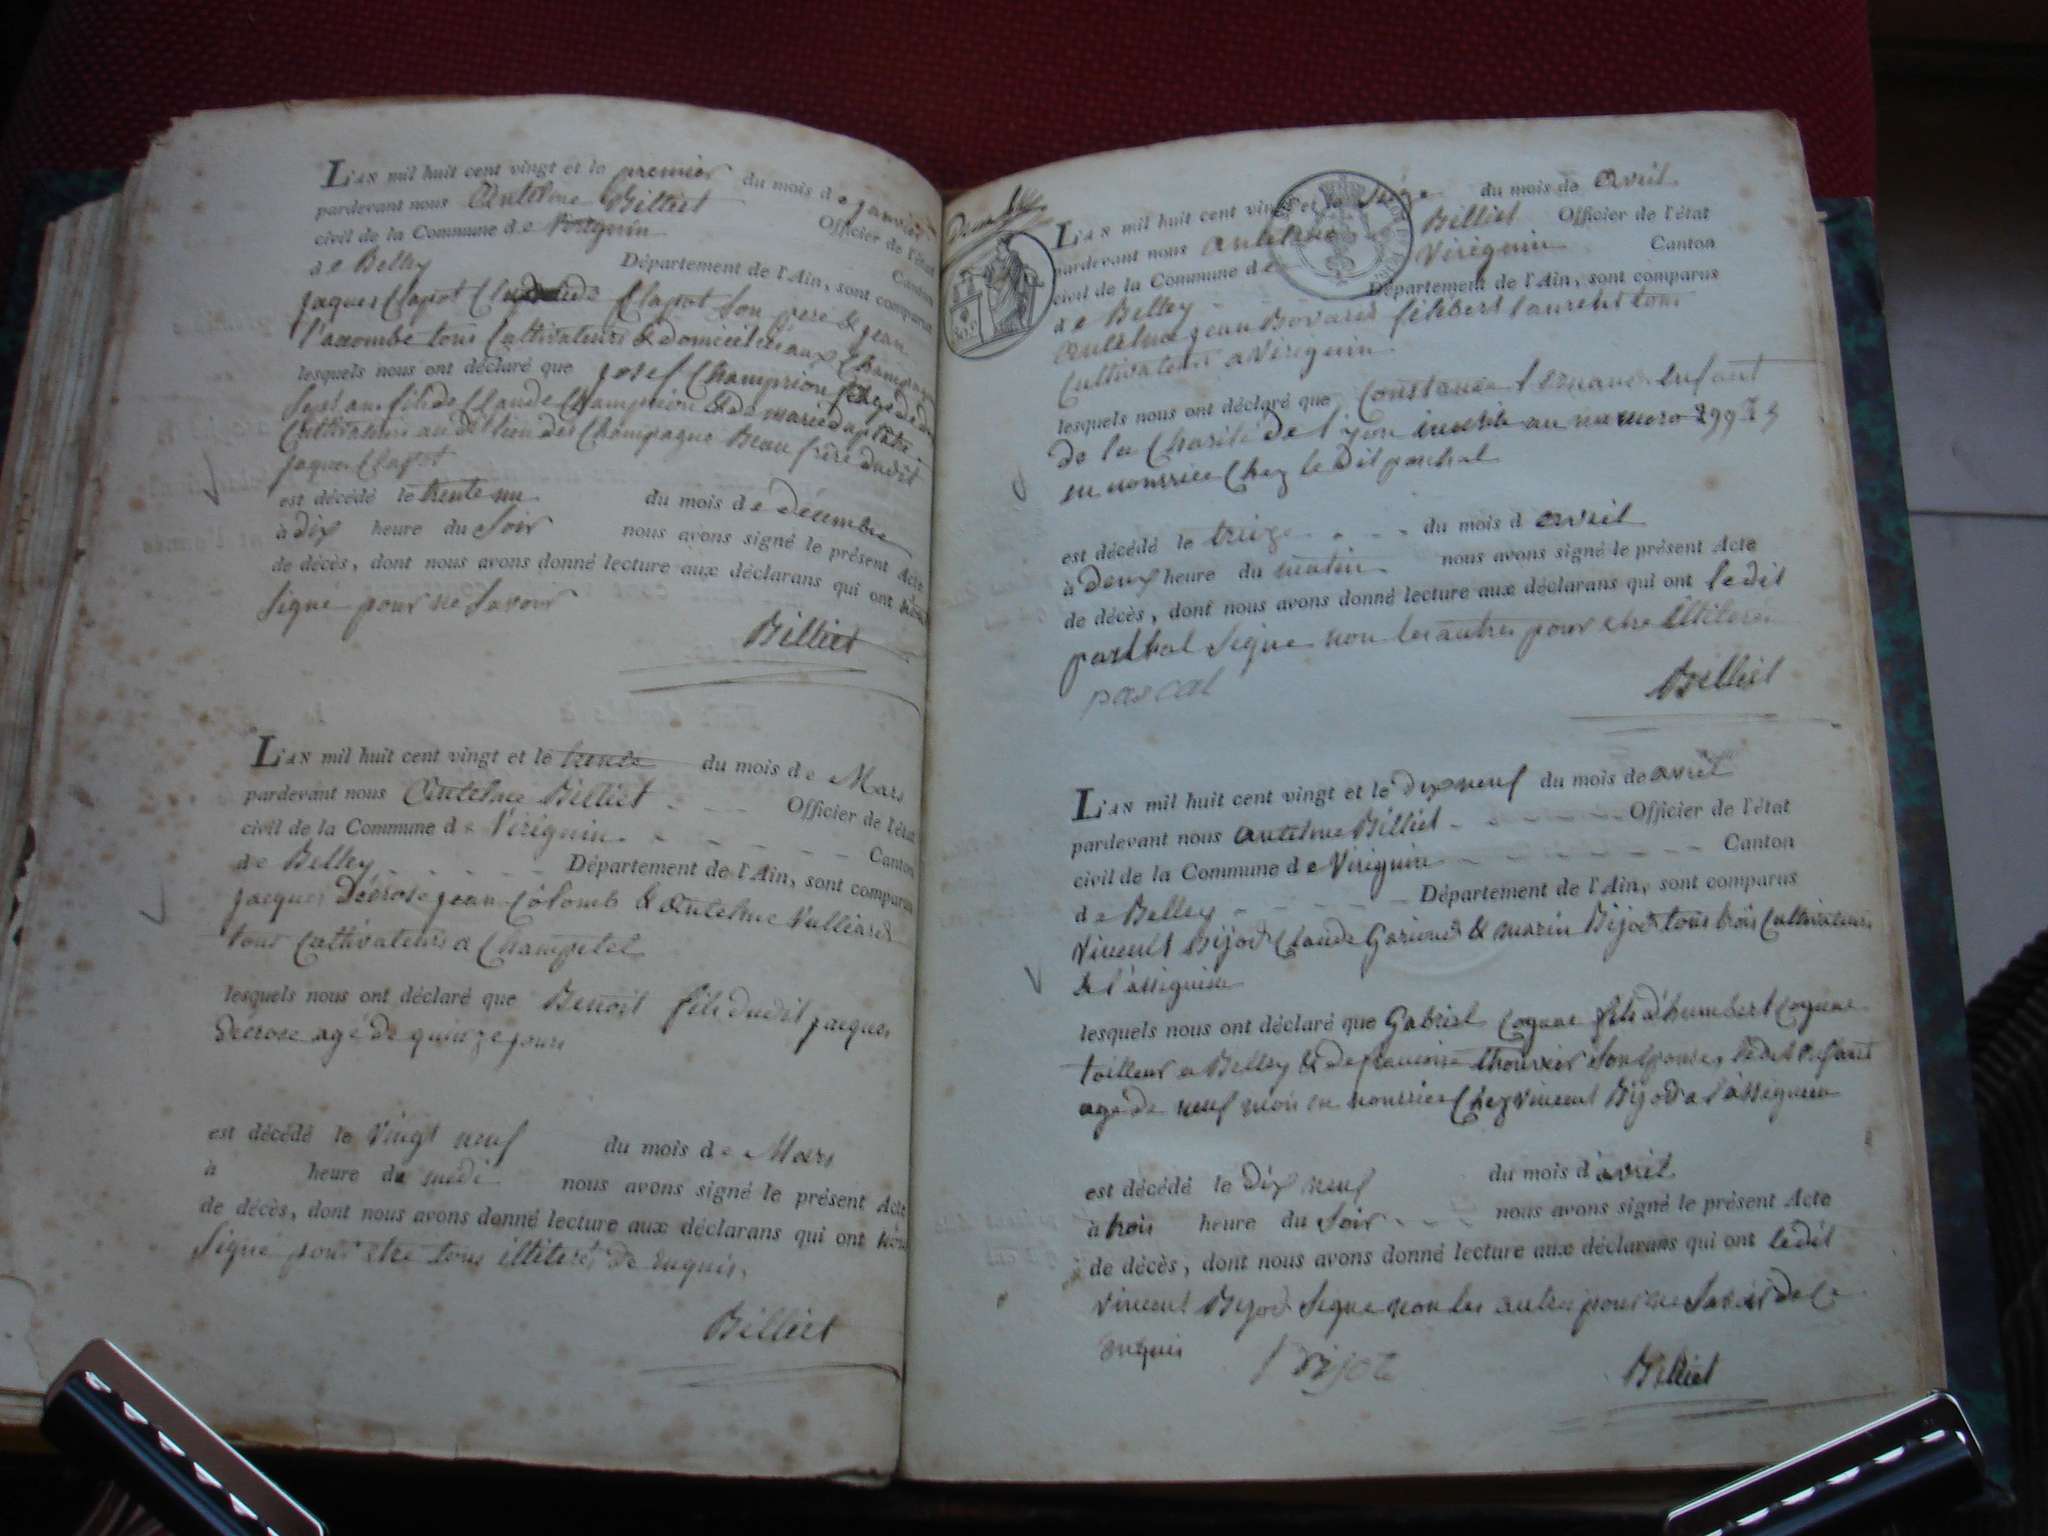 L'AN mil huit cent vingt et le premier du mois de janvier
pardevant nous Antelme Billiet Officier de l'état
civil de la Commune de Virignin Canton
de Belley Département de l'Ain, sont comparus
Jaques Clapot Clapot son pere & jean
l'accombe tous Cultivateurs & domiciliés aux Champagne
lesquels nous ont déclaré que Josef Champrion agé de
Sept ans fils de Claude Champrion & de marie
Cultivateurs au dit lieu des Champagne Beau frère dudit
Jaques Clapot
est décédé le trente un du mois de décembre
à dix heure du Soir nous avons signé le présent Acte
de décès, dont nous avons donné lecture aux déclarans qui ont non
Signé pour ne Savoir
Billiet
L'AN mil huit cent vingt et le trente du mois de Mars
pardevant nous Antelme Billiet Officier de l'état
civil de la Commune de Virignin Canton
de Belley Département de l'Ain, sont comparus
jacques Décrose jean Colomb & Antelme Vulliard
tous Cultivateurs a Champetel
lesquels nous ont déclaré que Benoit fils dudit jacques
Decrose agé de quinze jours
est décédé le Vingt neuf du mois de Mars
à heure de midi nous avons signé le présent Acte
de décès, dont nous avons donné lecture aux déclarans qui ont non
Signé pour etre tous illiterés de Enquis.
Billiet
L'AN mil huit cent vingt et le du mois de avril
pardevant nous Antelme Billiet Officier de l'état
civil de la Commune de Virignin Canton
de Belley Département de l'Ain, sont comparus
Antelme jean Bovard filibert laurent tous
Cultivateurs a Virignin
lesquels nous ont déclaré que Constance enfant
de la Charité de Lyon inscrite au numero
en nourrice Chez le Dit paschal
est décédé le treize du mois d avril
à deux heure du matin nous avons signé le présent Acte
de décès, dont nous avons donné lecture aux déclarans qui ont ledit
paschal Signe non les autres pour etre illiterés
pascal Billiet
L'AN mil huit cent vingt et le dix neuf du mois de avril
pardevant nous Antelme Billiet Officier de l'état
civil de la Commune de Virignin Canton
de Belley Département de l'Ain, sont comparus
Vincent Bijod Claude & marin Bijod tous trois Cultivateurs
a l'assignieu
lesquels nous ont déclaré que Gabriel Cognac fils d'humbert Cognac
tailleur a Belley & de francoise Son Epouse, ledit enfant
age de neuf mois en nourrice Chez Vincent Bijod a l'assignieu
est décédé le Dix neuf du mois d'avril
à trois heure du Soir nous avons signé le présent Acte
de décès, dont nous avons donné lecture aux déclarans qui ont ledit
Vincent Bijod Signe non les autres pour ne Savoir de Ce
Enquis Bijod Billiet